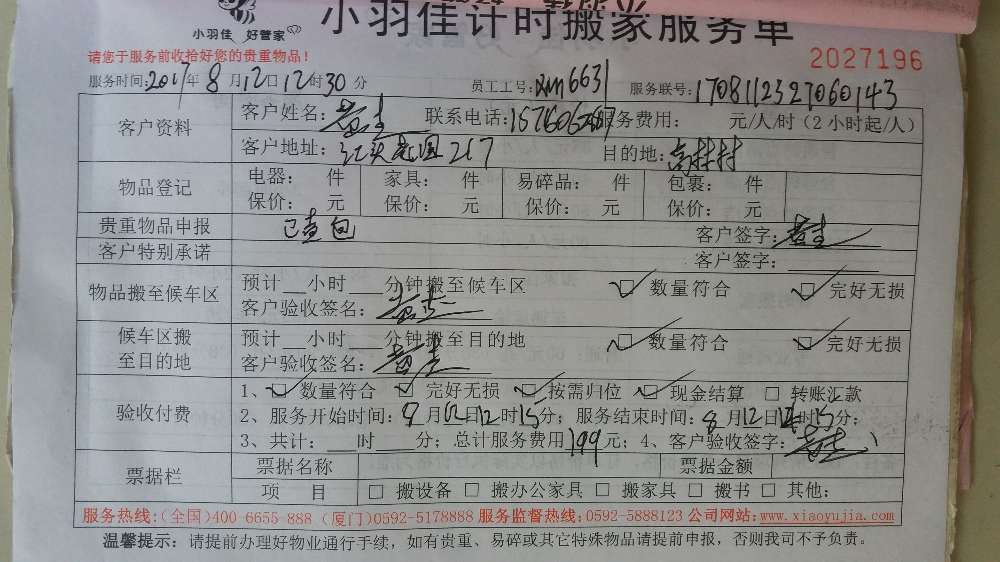 小羽佳 好管家
小羽佳计时搬家服务单
请您于服务前收拾好您的贵重物品!
2027196
服务时间:2017年8月12日12时30分 员工工号:RM6631 服务联号:1708112327060143
客户资料
客户姓名: 联系电话: 服务费用: 元/人/时(2小时起/人)
客户地址: 217 目的地:高林村
物品登记
电器: 件 家具: 件 易碎品: 件 包裹: 件
保价: 元 保价: 元 保价: 元 保价: 元
贵重物品申报 已查包 客户签字:
客户特别承诺 客户签字:
物品搬至候车区
预计__小时___分钟搬至候车区 ☑数量符合 ☑完好无损
客户验收签名:
候车区搬至目的地
预计__小时___分钟搬至目的地 ☑数量符合 ☑完好无损
客户验收签名:
验收付费
1、☑数量符合 ☑完好无损 ☑按需归位 ☑现金结算 □转账汇款
2、服务开始时间: 月12日12时15分;服务结束时间:8月12日 时15分;
3、共计:___时___分;总计服务费用199元;4、客户验收签字:
票据栏
票据名称 票据金额
项 目 □搬设备 □搬办公家具 □搬家具 □搬书 □其他:
服务热线:(全国)400-6655-888 (厦门)0592-5178888 服务监督热线:0592-5888123 公司网站:www.xiaoyujia.com
温馨提示:请提前办理好物业通行手续,如有贵重、易碎或其它特殊物品请提前申报,否则我司不予负责。